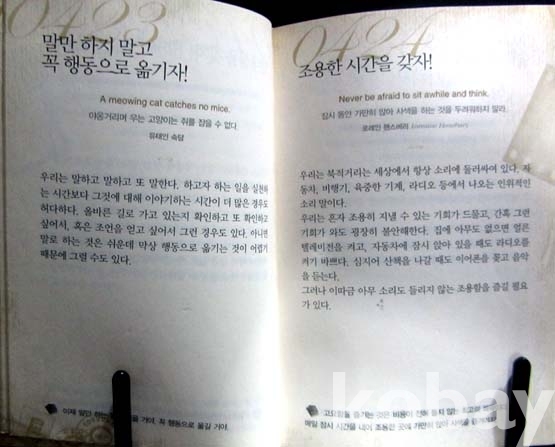 0423
말만 하지 말고
꼭 행동으로 옮기자!
A meowing cat catches no mice.
야옹거리며 우는 고양이는 쥐를 잡을 수 없다.
유태인 속담
우리는 말하고 말하고 또 말한다. 하고자 하는 일을 실천하
는 시간보다 그것에 대해 이야기하는 시간이 더 많은 경우도
허다하다. 올바른 길로 가고 있는지 확인하고 또 확인하고
싶어서, 혹은 조언을 얻고 싶어서 그런 경우도 있다. 아니면
말로 하는 것은 쉬운데 막상 행동으로 옮기는 것이 어렵기
때문에 그럴 수도 있다.
이제 말만 하는 을 거야. 꼭 행동으로 옮길 거야.
0424
조용한 시간을 갖자!
Never be afraid to sit awhile and think.
잠시 동안 가만히 앉아 사색을 하는 것을 두려워하지 말라.
로레인 핸스베리 Lorraine Hansberry
우리는 북적거리는 세상에서 항상 소리에 둘러싸여 있다. 자
동차, 비행기, 육중한 기계, 라디오 등에서 나오는 인위적인
소리 말이다.
우리는 혼자 조용히 지낼 수 있는 기회가 드물고, 간혹 그런
기회가 와도 굉장히 불안해한다. 집에 아무도 없으면 얼른
텔레비전을 켜고, 자동차에 잠시 앉아 있을 때도 라디오를
켜기 바쁘다. 심지어 산책을 나갈 때도 이어폰을 꽂고 음악
을 듣는다.
그러나 이따금 아무 소리도 들리지 않는 조용함을 즐길 필요
가 있다.
고요함을 즐기는 것은 비용이 전혀 들지 않는 최고의
매일 잠시 시간을 내어 조용한 곳에 가만히 앉아 사색을 즐겨야지.
kobay